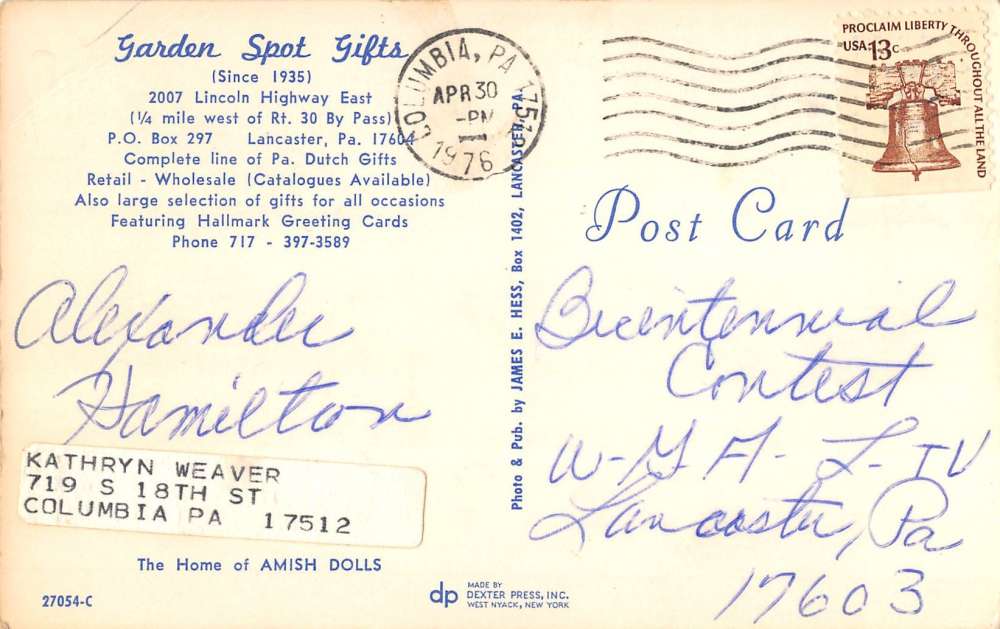 Garden Spot Gifts
(Since 1935)
2007 Lincoln Highway East
(1/4 mile west of Rt. 30 By Pass)
P.O. Box 297 Lancaster, Pa. 17604
Complete line of Pa. Dutch Gifts
Retail - Wholesale (Catalogues Available)
Also large selection of gifts for all occasions
Featuring Hallmark Greeting Cards
Phone 717 - 397-3589
Alexander
Hamilton
KATHRYN WEAVER
719 S 18TH ST
COLUMBIA PA 17512
The Home of AMISH DOLLS
27054-C
COLUMBIA, PA 1751
APR 30
-PM
1976
Photo & Pub. by JAMES E. HESS, Box 1402, LANCASTER, PA.
dp
MADE BY
DEXTER PRESS, INC.
WEST NYACK, NEW YORK
PROCLAIM LIBERTY THROUGHOUT ALL THE LAND
USA 13c
Post Card
Bicentennial
Contest
W-G A-L-TV
Lancaster, Pa
17603